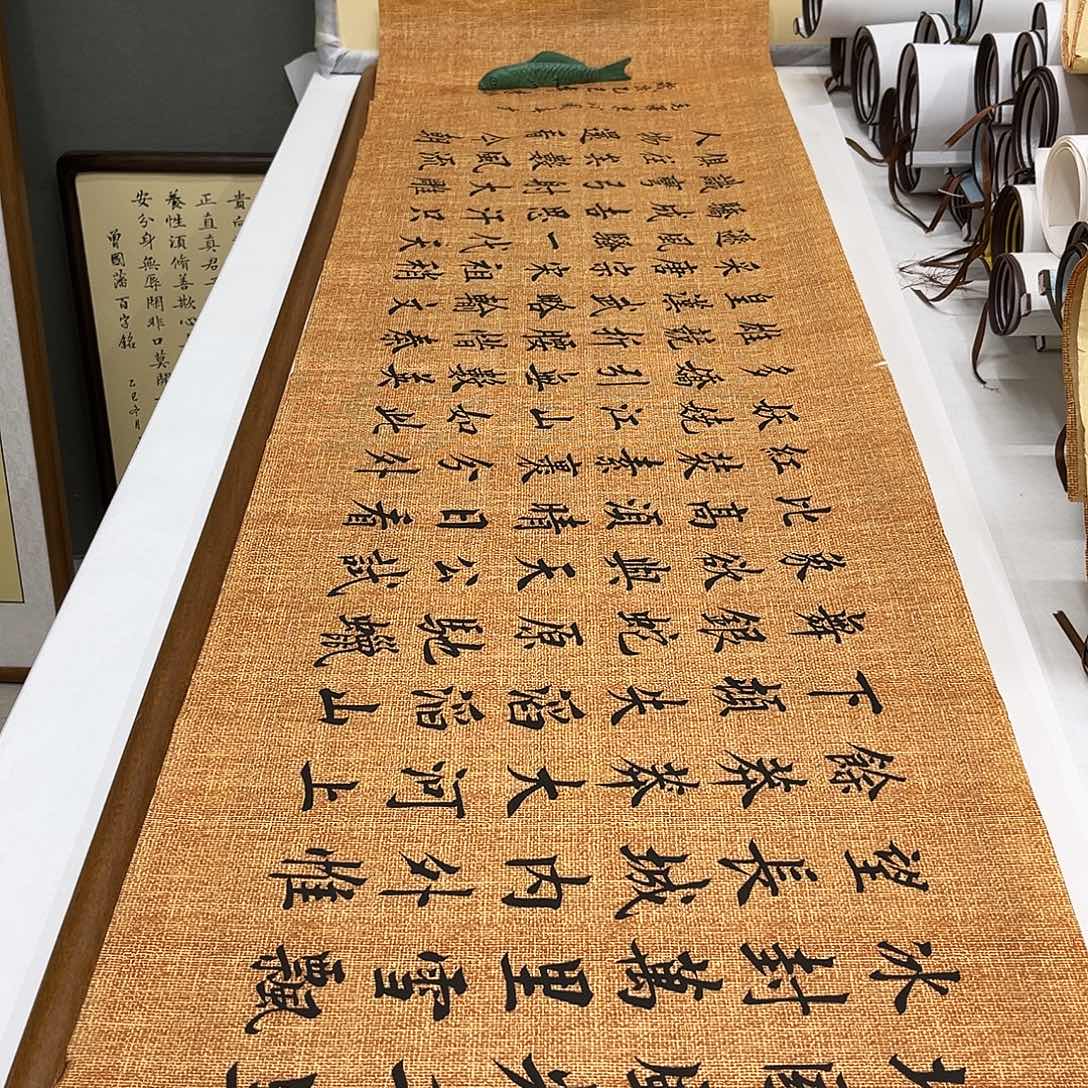 冰封萬里雪飄
望長城內外惟
餘莽莽大河上
下頓失滔滔山
舞銀蛇原馳蠟
象欲與天公試
比高須晴日看
紅裝素裹分外
妖嬈江山如此
多嬌引無數英
雄競折腰惜秦
皇漢武略輸文
采唐宗宋祖稍
遜風騷一代天
驕成吉思汗只
識彎弓射大雕
俱往矣數風流
人物還看今朝
貴
正直真君
養性須脩善欺心
安分身無辱閑非口莫開
曾國藩百字銘
乙巳年月